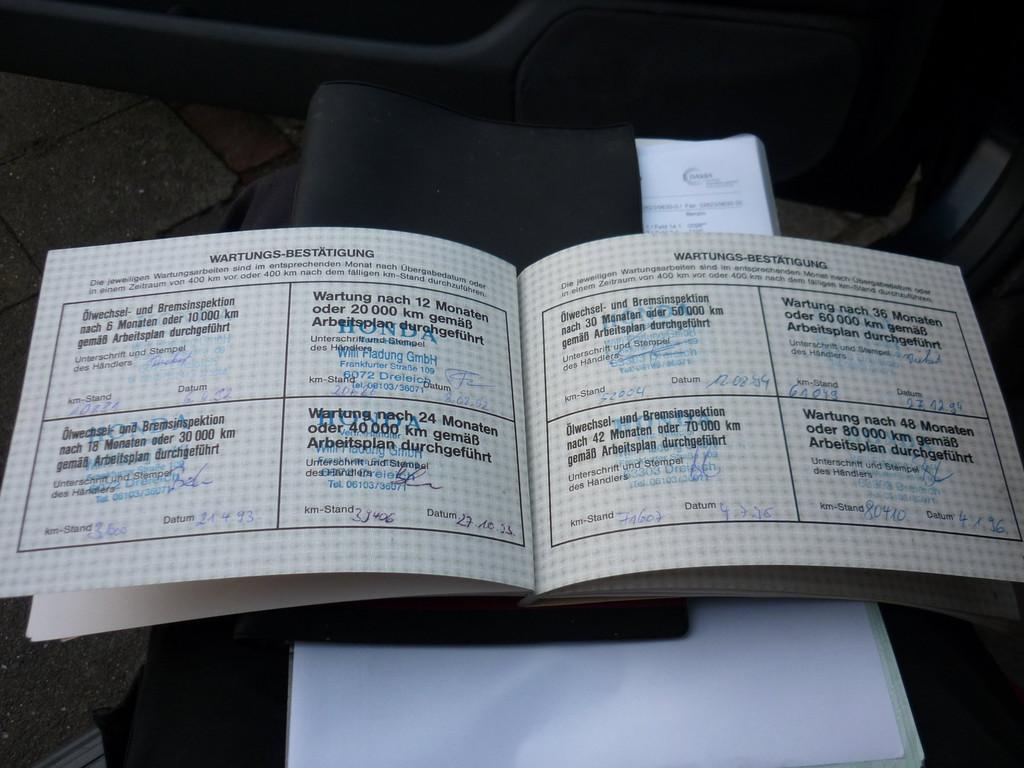 WARTUNGS-BESTÄTIGUNG
Die jeweiligen Wartungsarbeiten sind im entsprechenden Monat nach Übergabedatum oder
in einem Zeitraum von 400 km vor oder 400 km nach dem fälligen km-Stand durchzuführen.
Ölwechsel- und Bremsinspektion
nach 6 Monaten oder 10 000 km
gemäß Arbeitsplan durchgeführt
Unterschrift und Stempel
des Händlers
km-Stand
Datum
Wartung nach 12 Monaten
oder 20 000 km gemäß
Arbeitsplan durchgeführt
Unterschrift und Stempel
des Händlers
HONDA
Willi Fladung GmbH
Frankfurter Straße 109
6072 Dreieich
Tel. 06103/36071
km-Stand
Datum
Ölwechsel- und Bremsinspektion
nach 18 Monaten oder 30 000 km
gemäß Arbeitsplan durchgeführt
Unterschrift und Stempel
des Händlers
Dreieich
Tel. 06103/36071
km-Stand
Datum 21.4.93
Wartung nach 24 Monaten
oder 40 000 km gemäß
Arbeitsplan durchgeführt
Unterschrift und Stempel
des Händlers
Willi Fladung GmbH
Dreieich
Tel. 06103/36071
km-Stand 39406 Datum 27.10.93
WARTUNGS-BESTÄTIGUNG
Die jeweiligen Wartungsarbeiten sind im entsprechenden Monat nach Übergabedatum oder
in einem Zeitraum von 400 km vor oder 400 km nach dem fälligen km-Stand durchzuführen.
Ölwechsel- und Bremsinspektion
nach 30 Monaten oder 50 000 km
gemäß Arbeitsplan durchgeführt
Unterschrift und Stempel
des Händlers
km-Stand
Datum 12.08.94
Wartung nach 36 Monaten
oder 60 000 km gemäß
Arbeitsplan durchgeführt
Unterschrift und Stempel
des Händlers
km-Stand 61079
Datum 27.12.94
Ölwechsel- und Bremsinspektion
nach 42 Monaten oder 70 000 km
gemäß Arbeitsplan durchgeführt
Unterschrift und Stempel
des Händlers
63303 Dreieich
Tel. 06103/36071
km-Stand 71607 Datum 4.7.95
Wartung nach 48 Monaten
oder 80 000 km gemäß
Arbeitsplan durchgeführt
Unterschrift und Stempel
des Händlers
km-Stand 80410 Datum 4.1.96